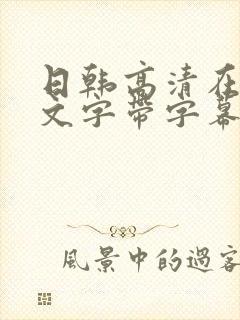 日韩高清在
文字带字幕
風景中的過客